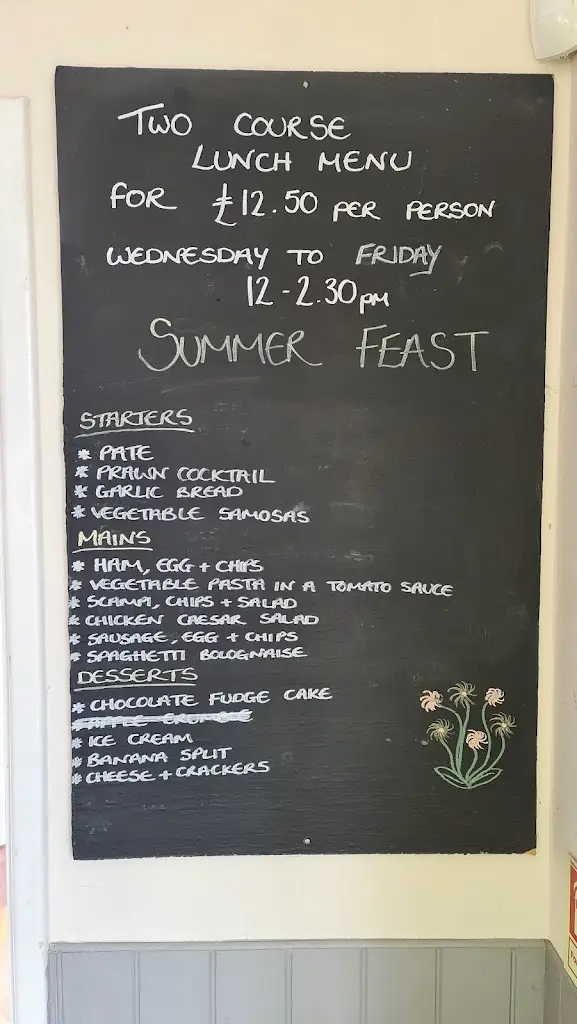 TWO COURSE
LUNCH MENU
FOR £12.50 PER PERSON
WEDNESDAY TO FRIDAY
12-2.30pm
SUMMER FEAST
STARTERS
* PATE
* PRAWN COCKTAIL
* GARLIC BREAD
* VEGETABLE SAMOSAS
MAINS
* HAM, EGG + CHIPS
* VEGETABLE PASTA IN A TOMATO SAUCE
* SCAMPI, CHIPS + SALAD
* CHICKEN CAESAR SALAD
* SAUSAGE, EGG + CHIPS
* SPAGHETTI BOLOGNAISE
DESSERTS
* CHOCOLATE FUDGE CAKE
* APPLE CRUMBLE
* ICE CREAM
* BANANA SPLIT
* CHEESE + CRACKERS